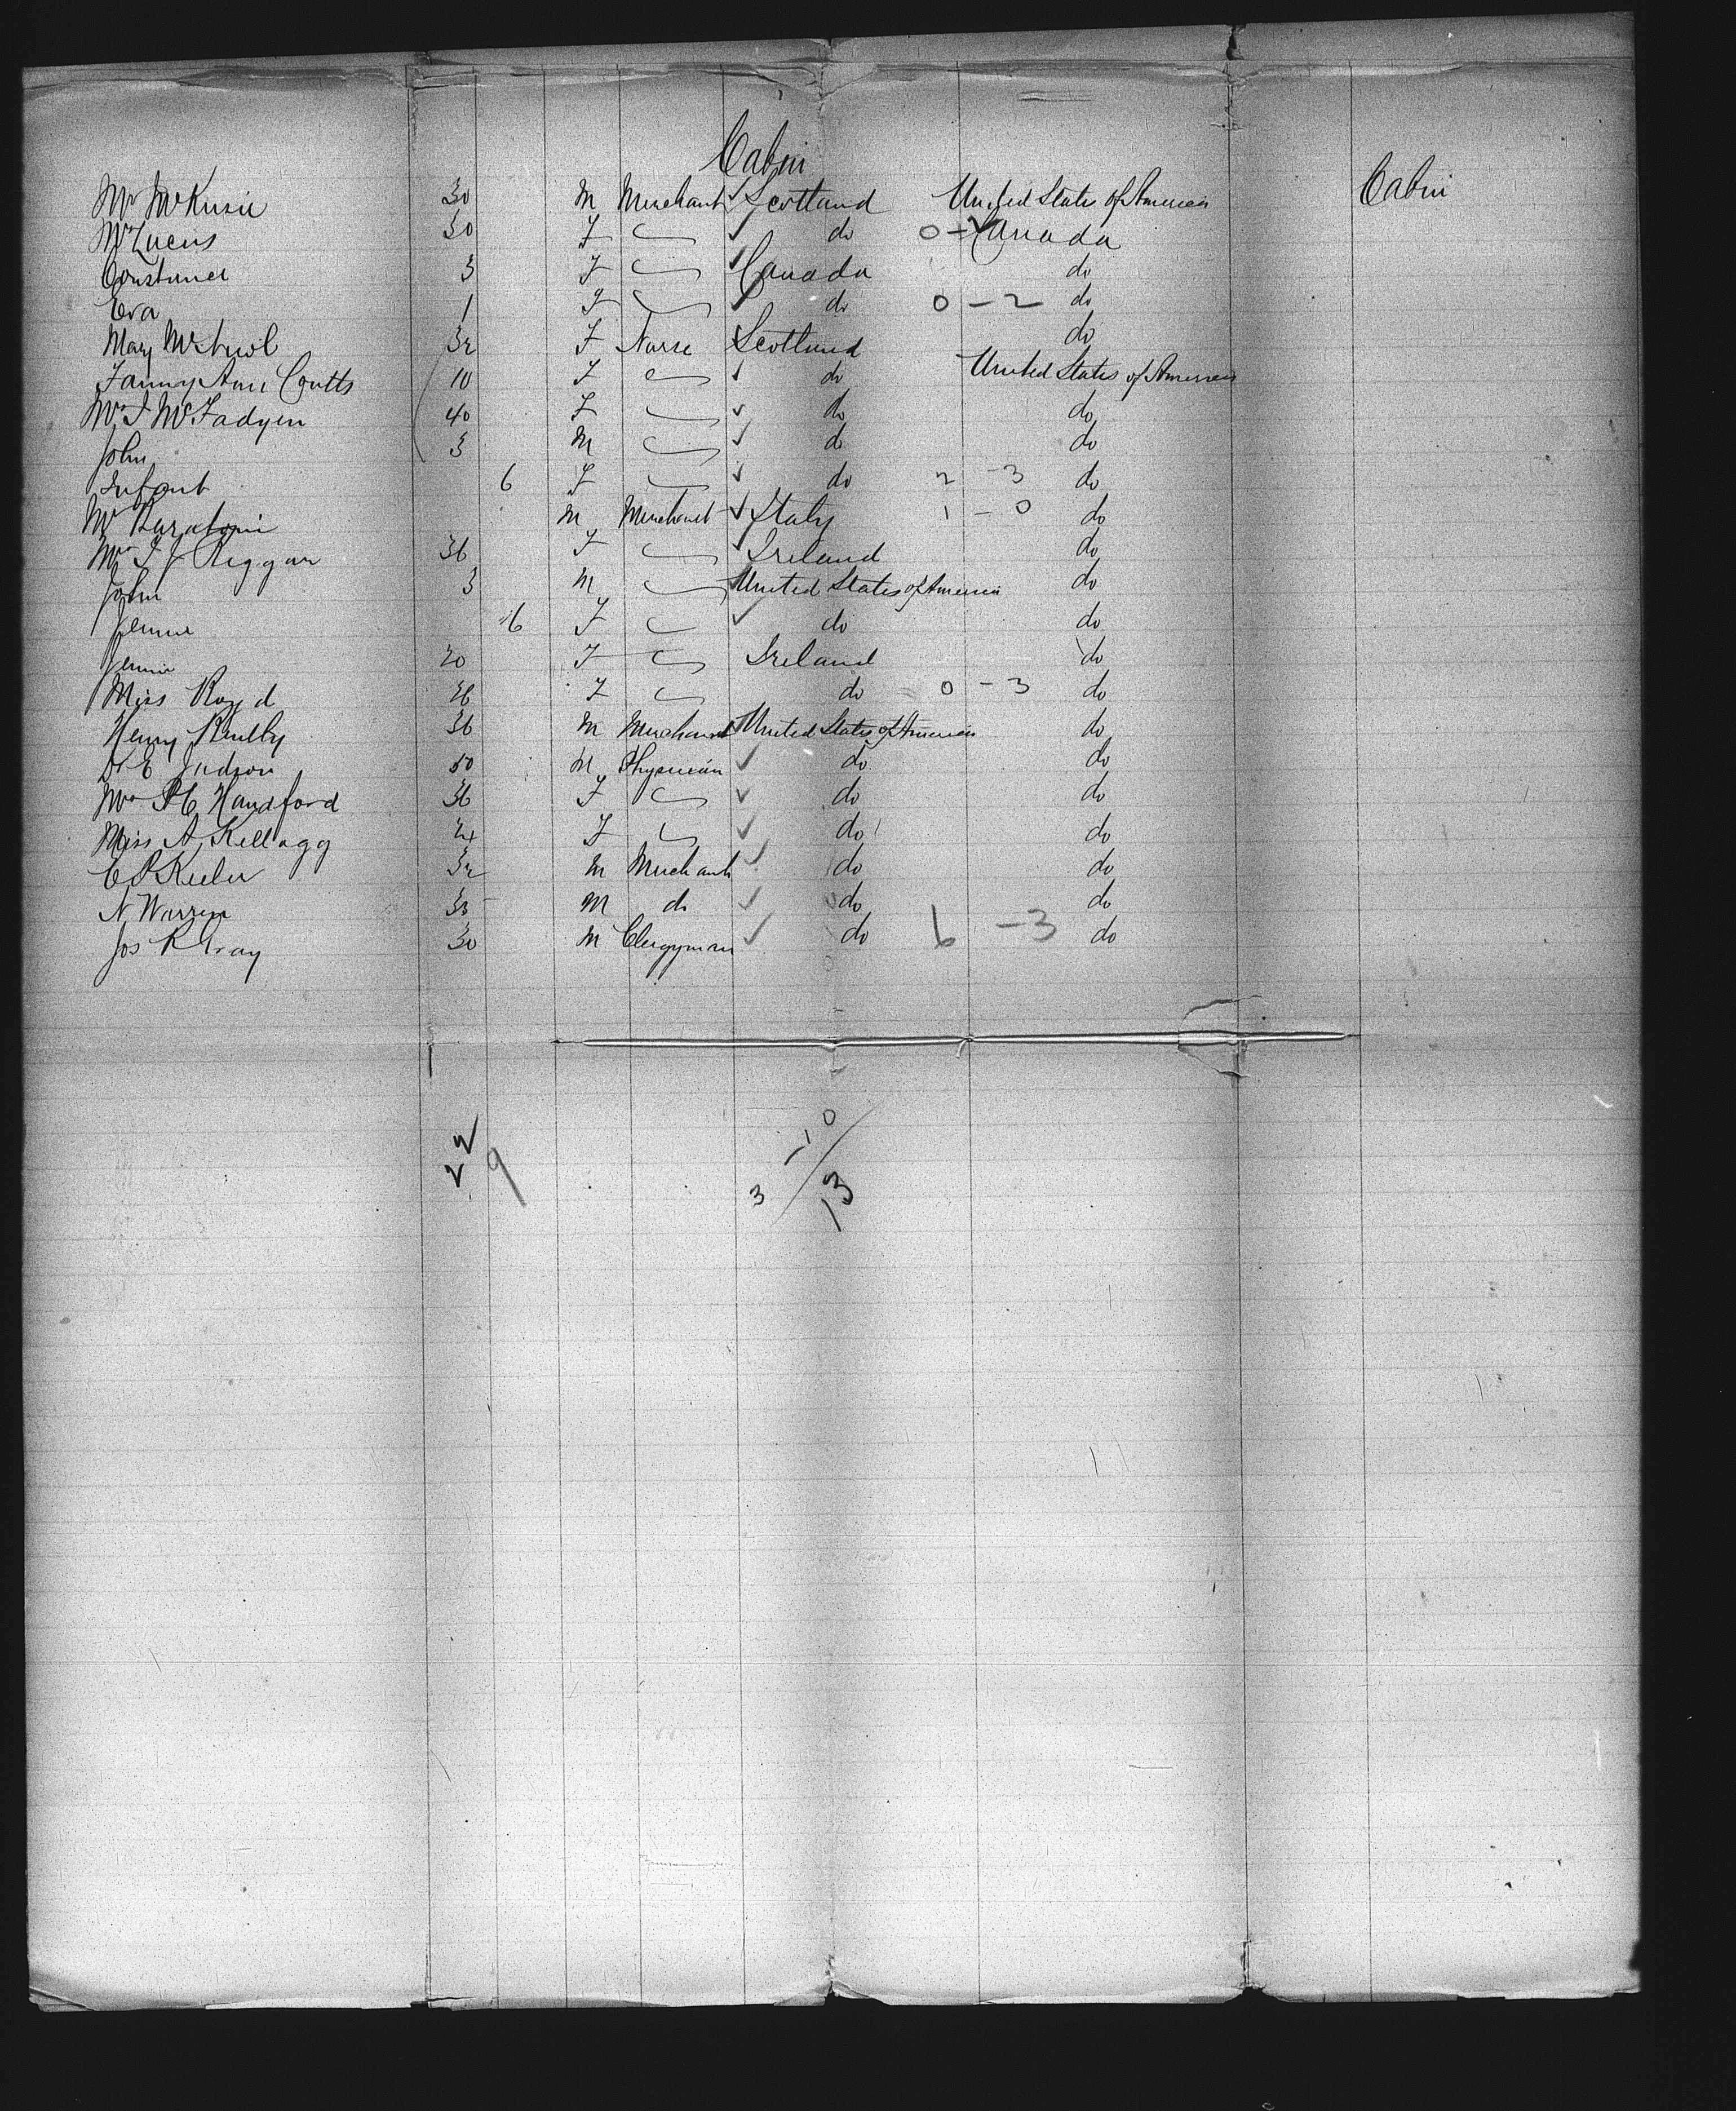 Cabin
Cabin
Mr McKusie 30 M Merchant Scotland United States of America
Mrs Lucus 30 F do 0 - Canada
Constance 3 F Canada do
Eva 1 F do 0 - 2 do
Mary 32 F Nurse Scotland do
Fanny Ann Coutts 10 F do United States of America
Mrs J McFadyen 40 F do do
John 3 M do do
Infant 6 F do 2 - 3 do
Mr M Merchant Italy 1 - 0 do
Mrs T J Reggar 36 F Ireland do
John 3 M United States of America do
Jennie 6 F do do
Jennie 20 F Ireland do
Miss Boyd 26 F do 0 - 3 do
Henry 36 M Merchant United States of America do
Dr E Judson 50 M Physician do do
Mrs P C Handford 36 F do do
Miss A Kellogg 24 F do do
C P Keeler 32 M Merchant do do
N Warren 38 M do do do
Jos R Gray 30 M Clergyman do 6 - 3 do
22 9
10
3 / 13